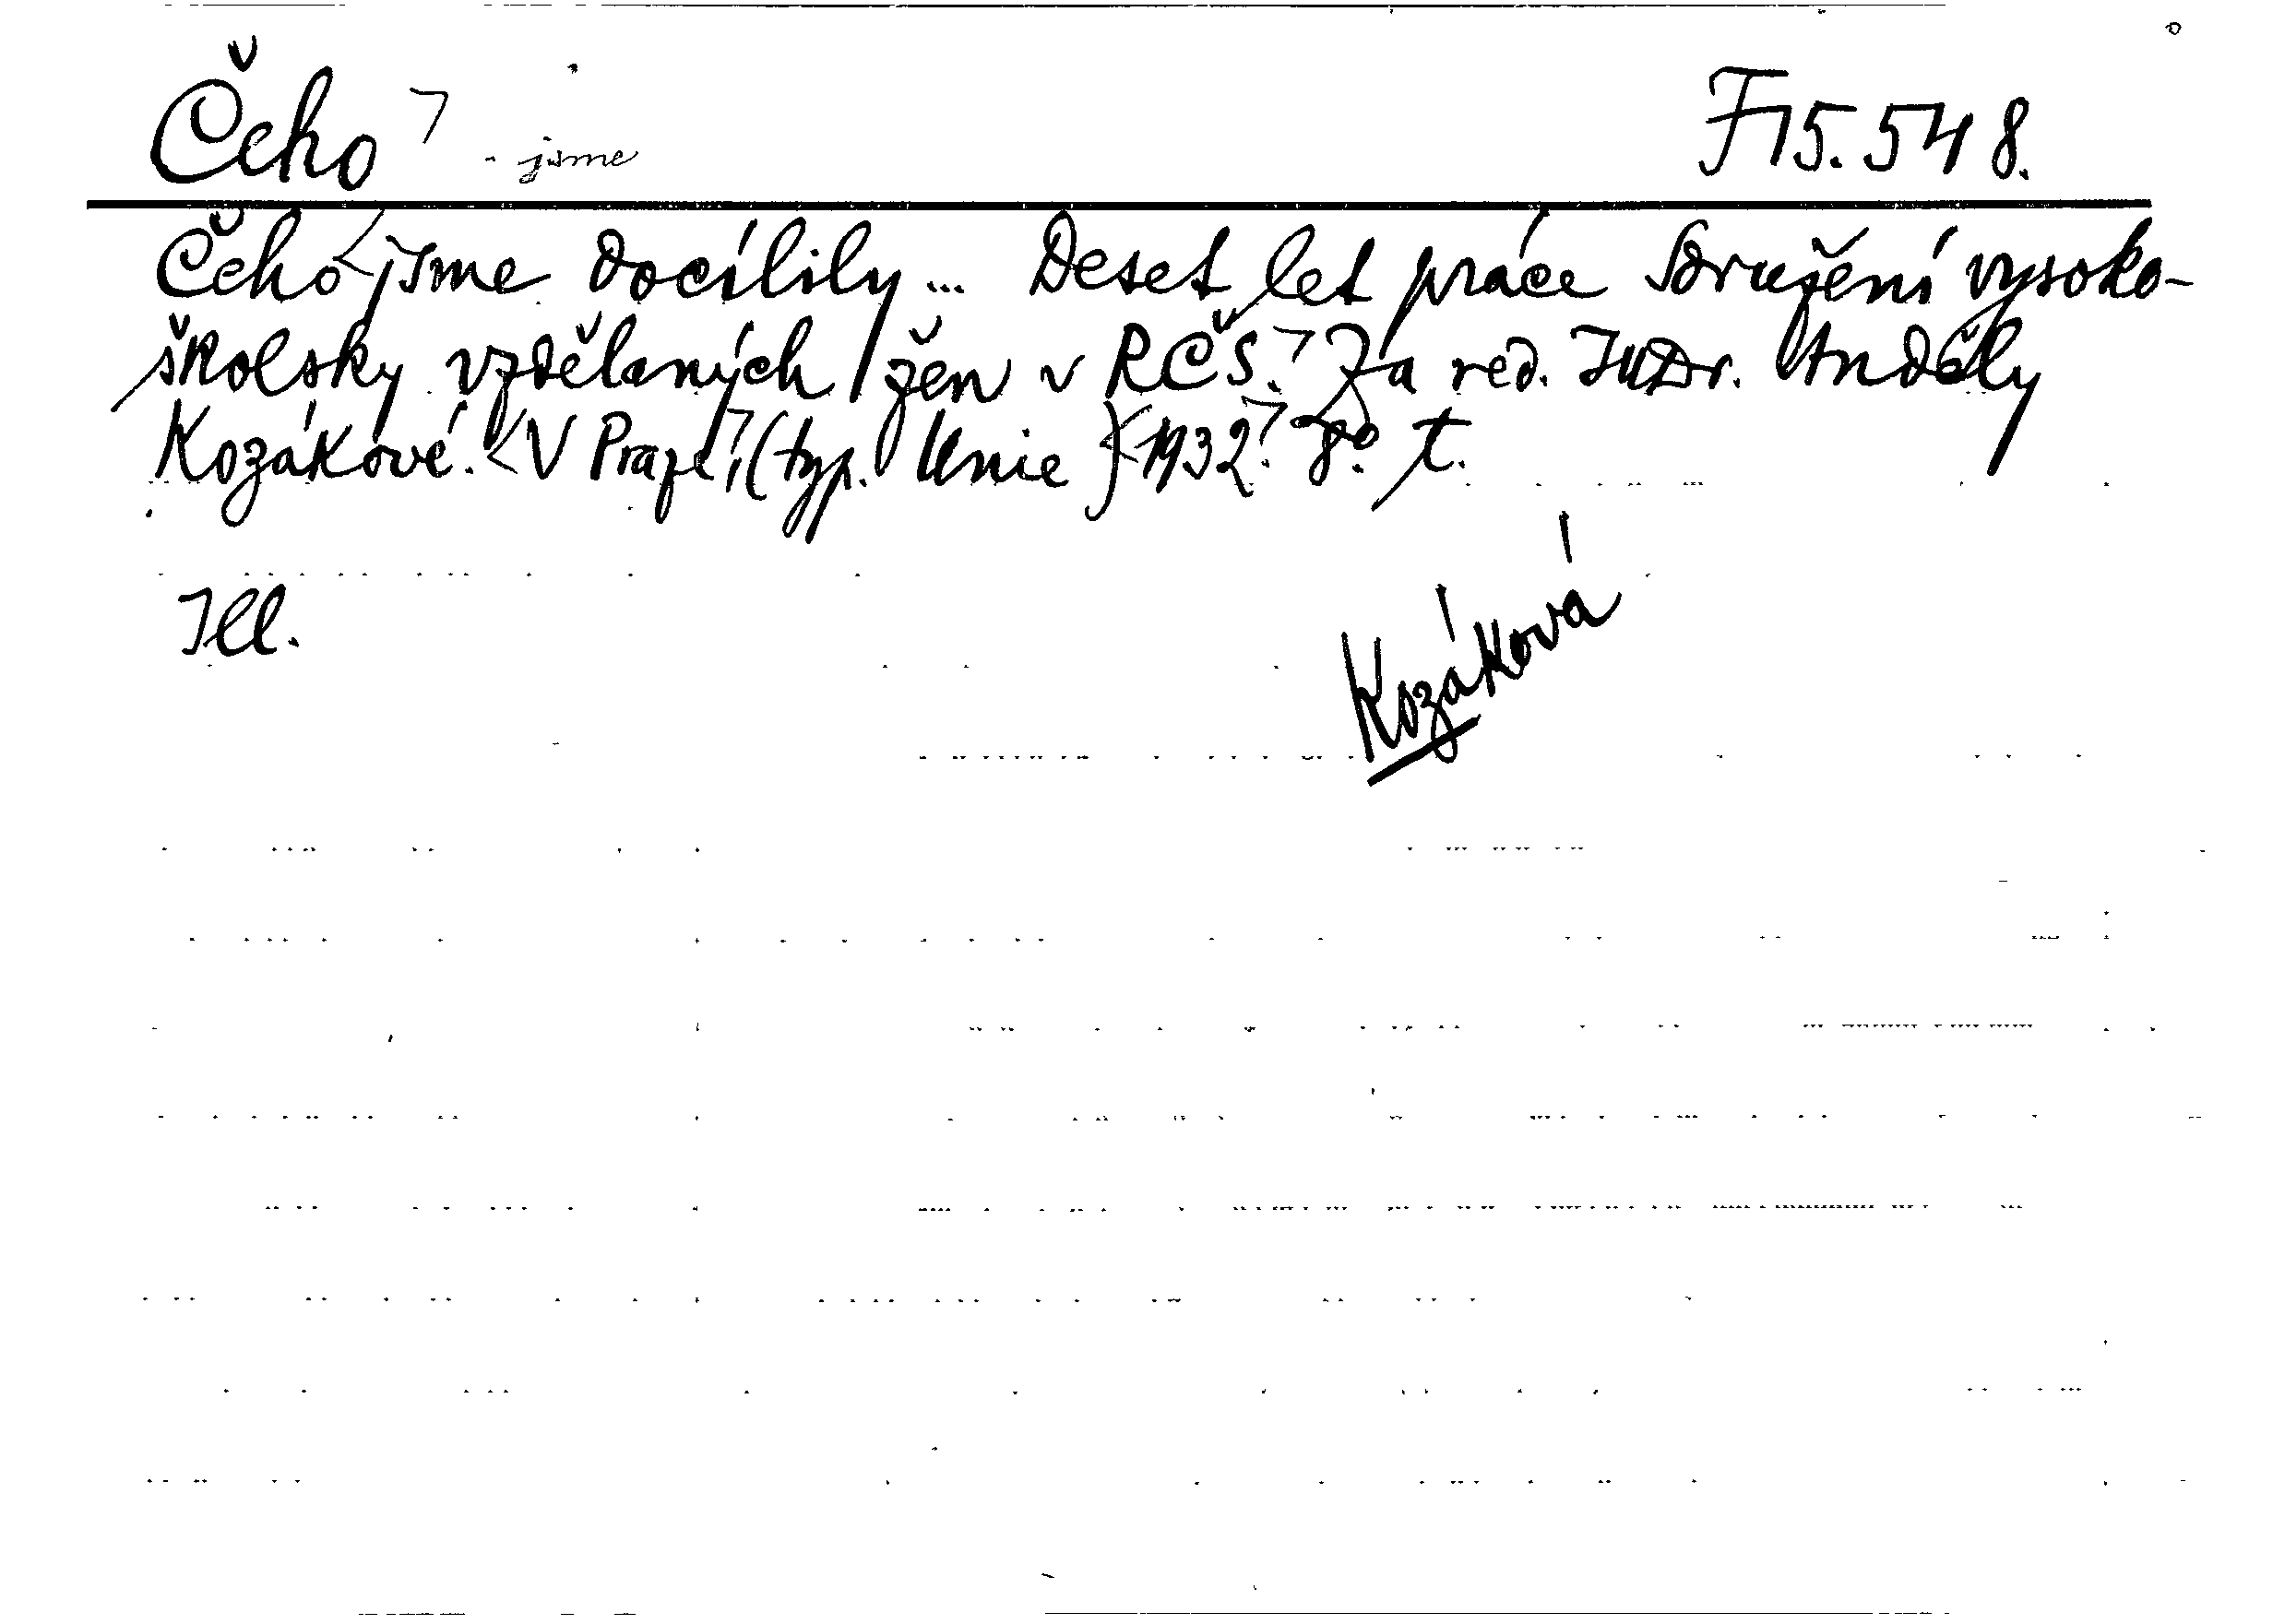 Čeho - jsme F 15.548.
Čeho jsme docílily... Deset let práce Sdružení vysoko-
školsky vzdělaných žen v RČS. Za red. JUDr. Anděly
Kozákové. V Praze, (typ. Unie) 1932. 8° t.
Ill.
Kozáková